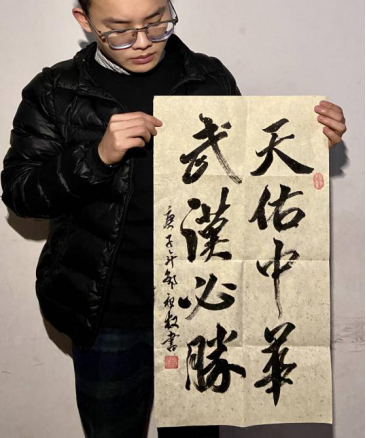 天佑中華
武漢必勝
庚子年